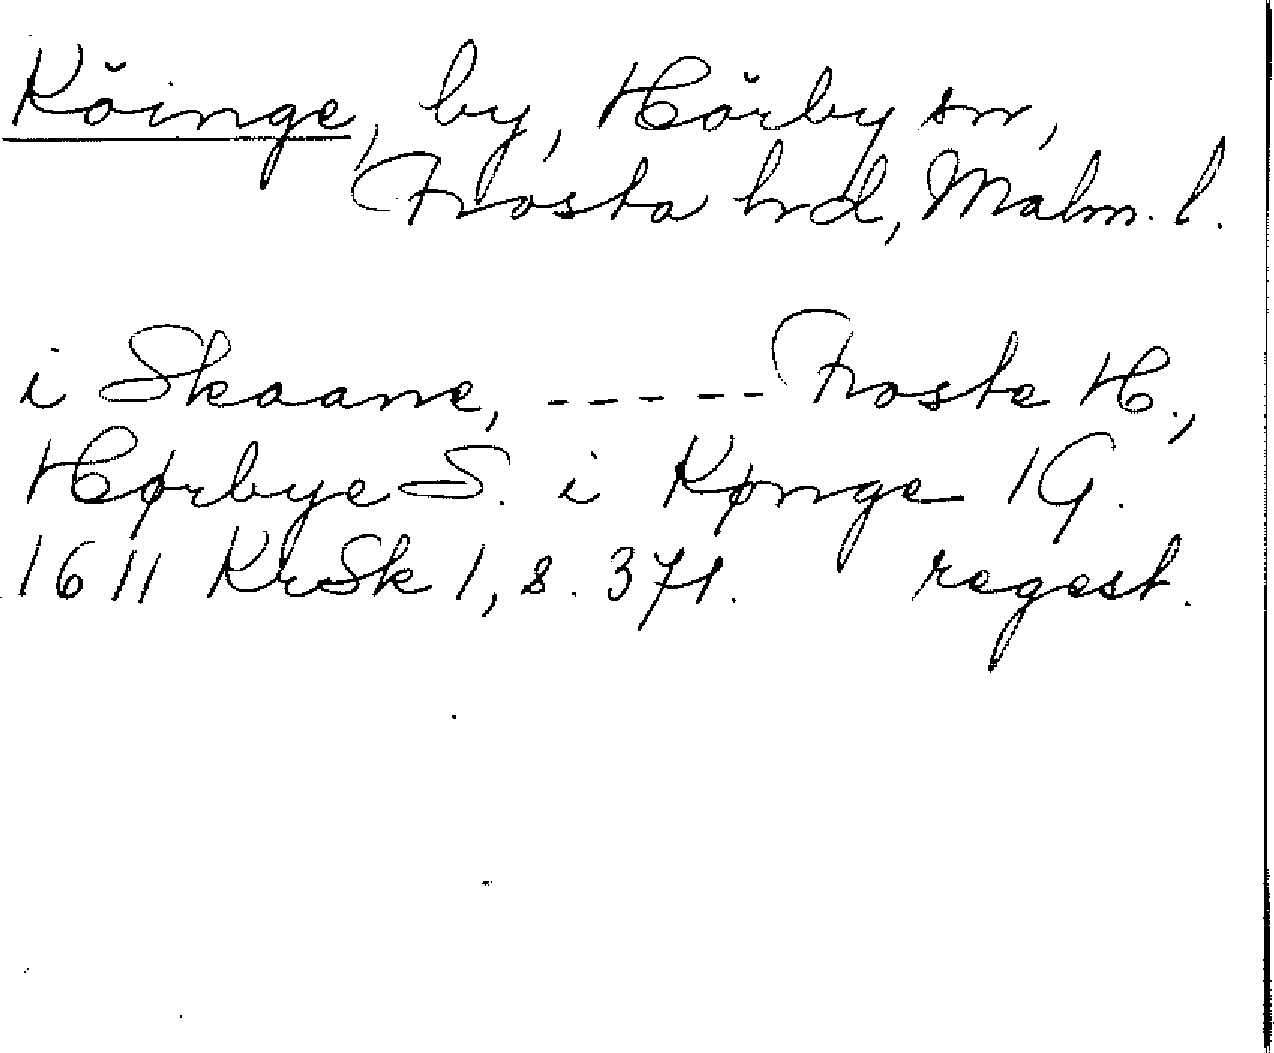 Köinge, by, Hörby sn,
Frosta hrd, Malm. l.
i Skaane, ----- Froste H.,
Hørbye S. i Kønge 1 G.
1611 KrSk 1, s. 371. regest.